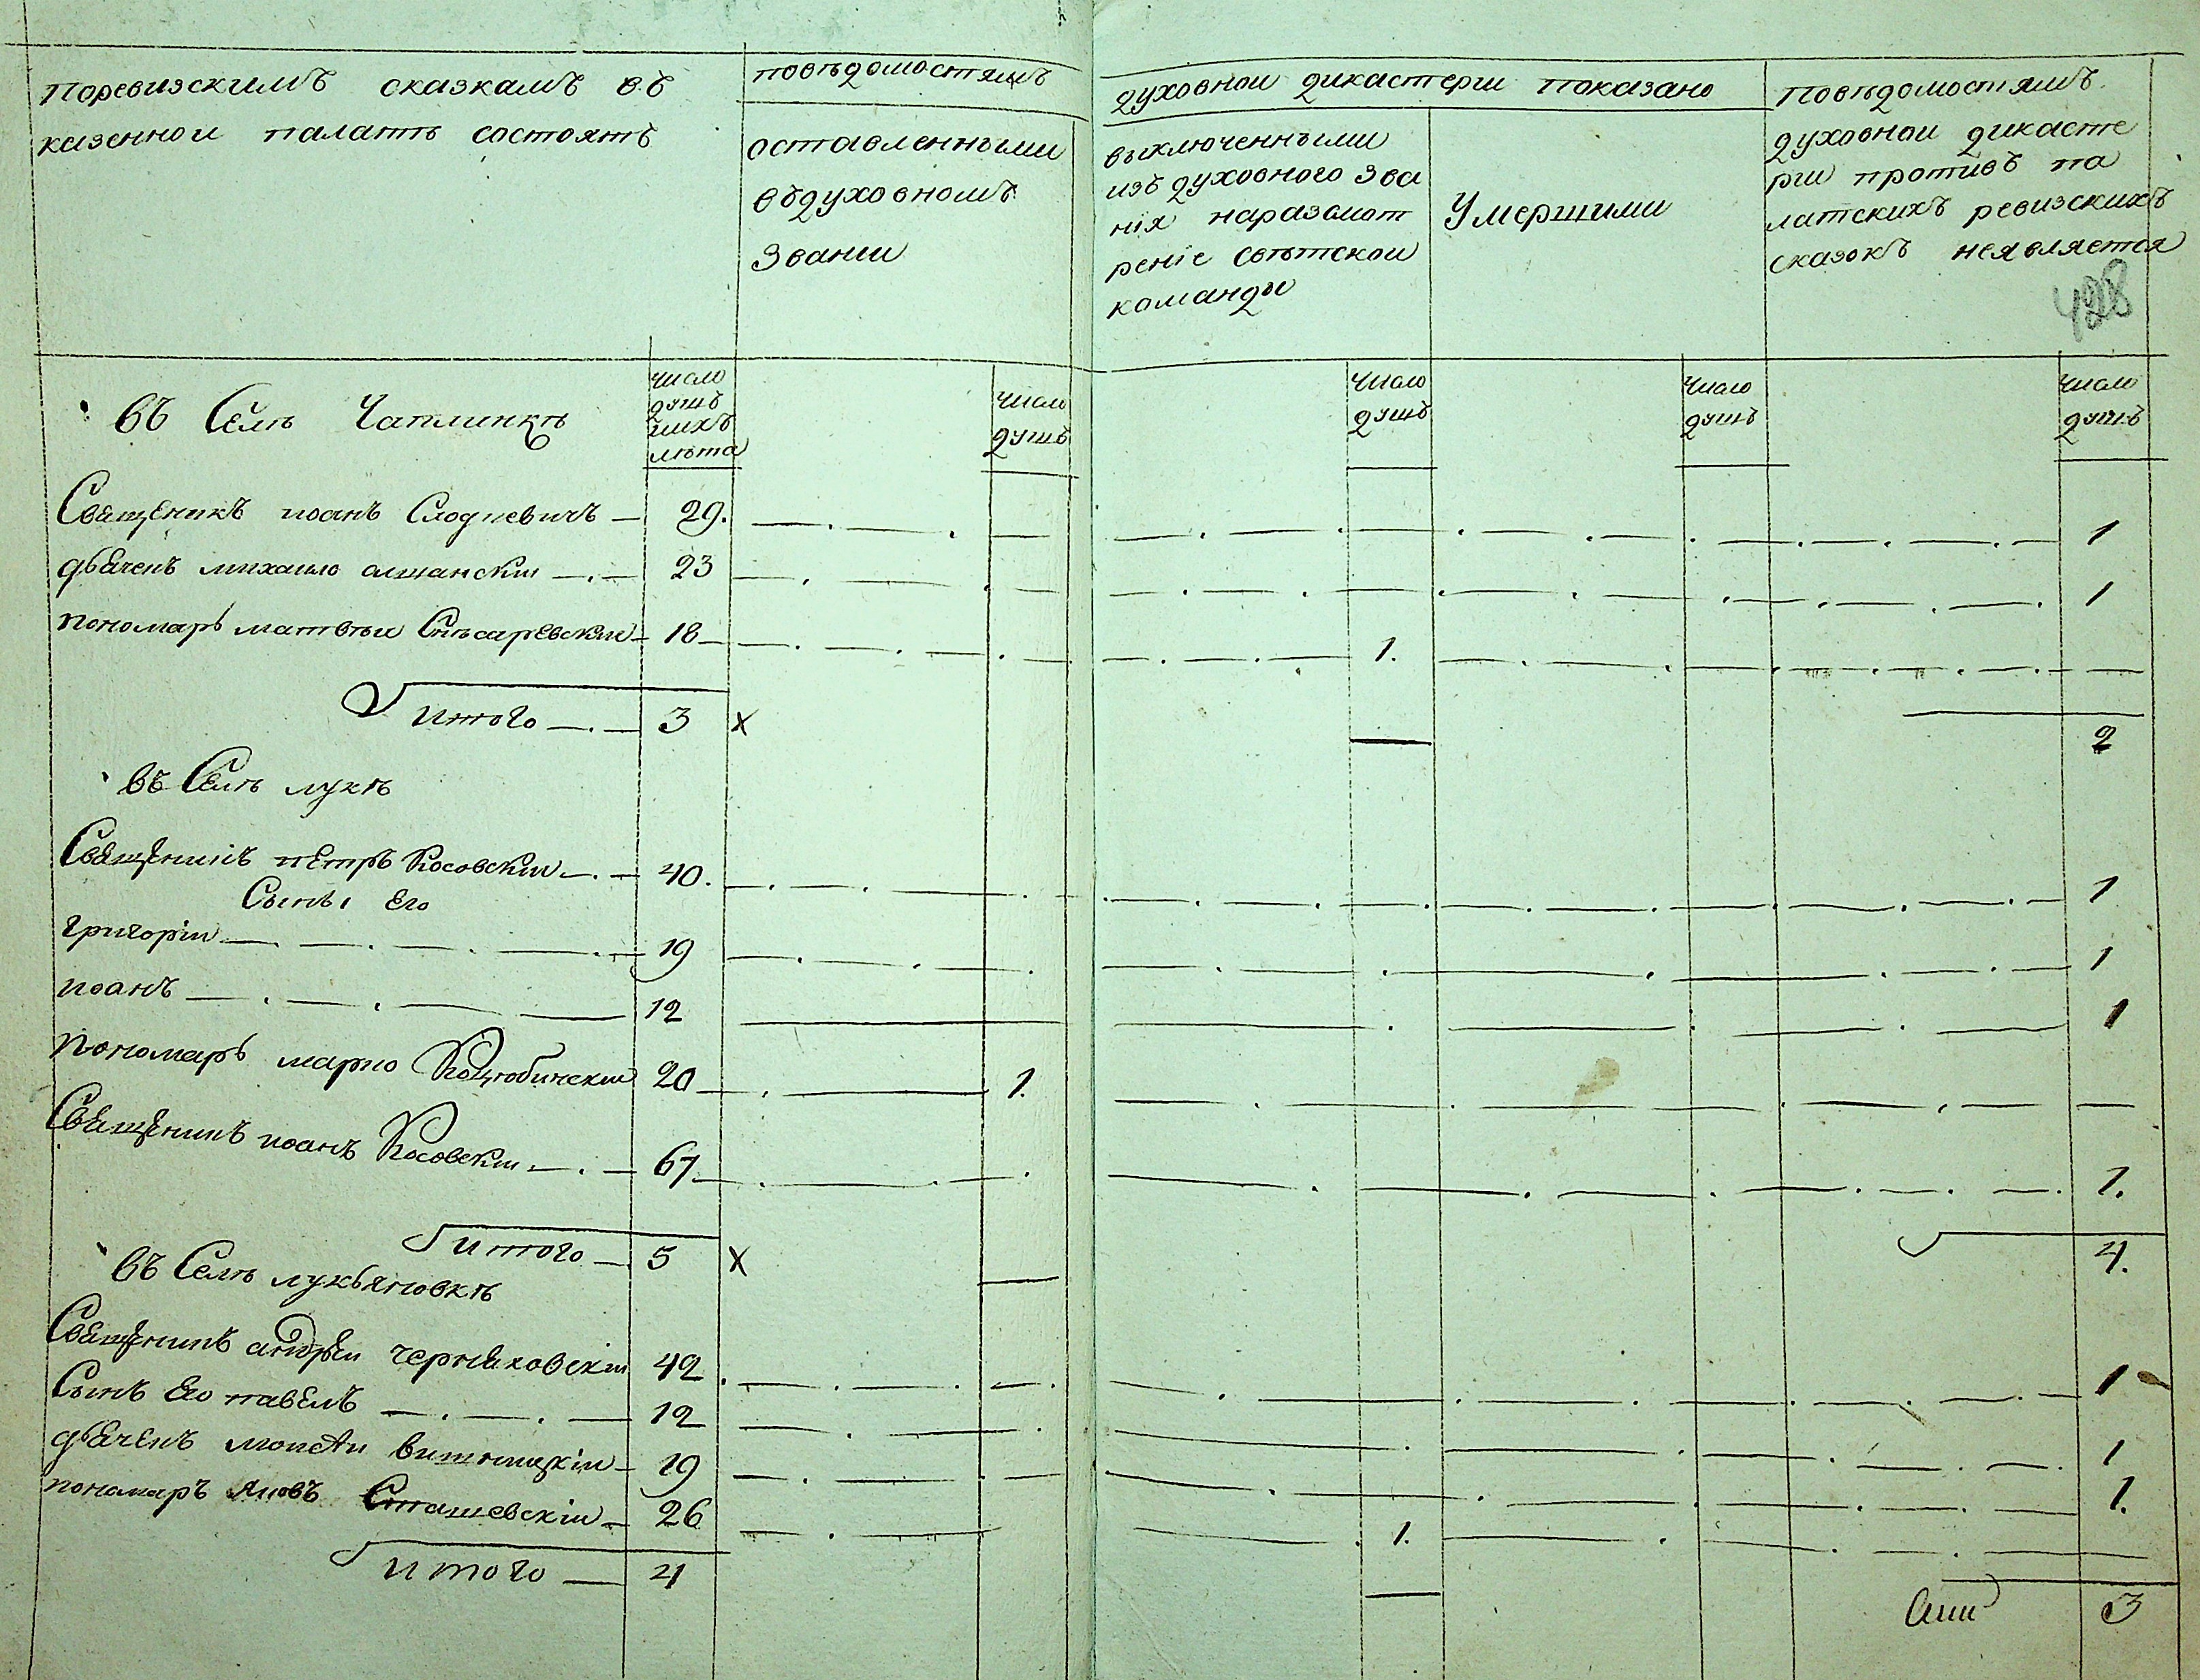 поревизскимъ сказкамъ въ
казенной палатѣ состоятъ
повѣдомостямъ
оставленными
въдуховномъ
званіи
духовной дикастеріи показано
выключенными
изъ духовного зва
нія наразсмот
реніе свѣтской
команды
Умершими
повѣдомостямъ
духовной дикасте
ріи противъ па
латскихъ ревизскихъ
сказокъ неявляется
428
число
душъ
ихъ
лѣта
число
душъ
число
душъ
число
душъ
число
душъ
въ Селѣ Чатлинкѣ
Священикъ иоанъ — 29. 1
дьяченъ михаило — 23 1
пономарь матвѣи Слѣсаревскии — 18 1.
итого — 3 х 2
въ Селѣ лукѣ
Священикъ пѣтръ Косовскии — 40. 1
Сыны его
григоріи — 19 1
иоанъ — 12 1
пономарь марко Коцюбинскии 20 1.
Священикъ иоанъ Косовскии — 67 1.
итого — 5 х 4.
въ Селѣ лукьяновкѣ
Священикъ андреи черняховскіи 42. 1
Сынъ его павелъ — 12 1
дьяченъ моисеи — 19 1.
пономаръ яковъ Сташевскіи — 26 1.
итого — 4 3